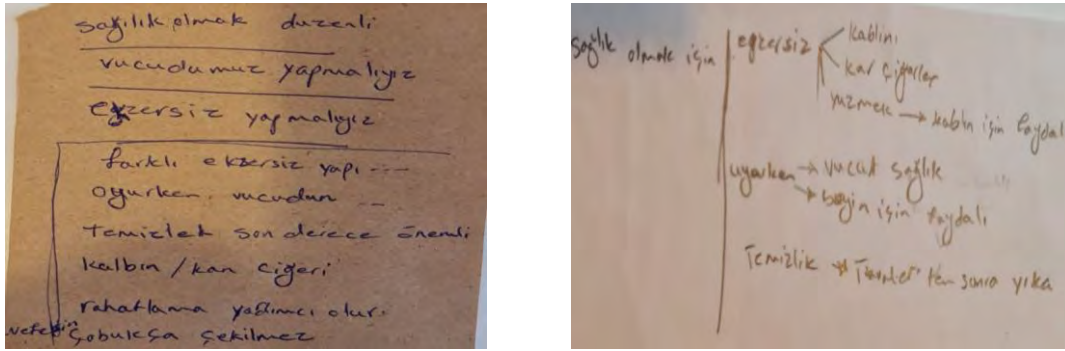 sağlık olmak duzenli
vucudumuz yapmalıyız
egzersiz yapmalıyız
farklı eksersiz yapı ---
oyurken vucudun --
temizlek son derece önemli
kalbın / kan ciğeri
rahatlama yardımcı olur.
nefesin çobukça çekilmez
sağlık olmak için
egzersiz
kablini
kar çiğerler
yüzmek → kablin için faydalı
uyurken → vucut sağlık
→ beyin için faydalı
Temizlik → ten sonra yıka